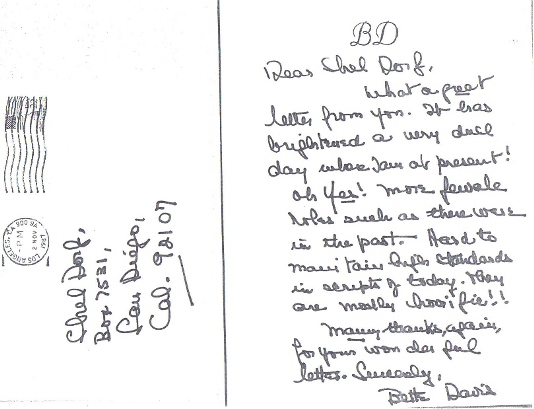 BD
Dear Shel Dorf,
What a great
letter from you. It has
brightened a very dull
day where I am at present!
Oh Yes! More female
roles such as there were
in the past. Hard to
maintain high standards
in scripts of today. They
are mostly horrific!!
Many thanks, again,
for your wonderful
letter. Sincerely,
Bette Davis
Shel Dorf,
Box 7521,
San Diego,
Cal. 92107
LOS ANGELES, CA 900
PM
2 NOV